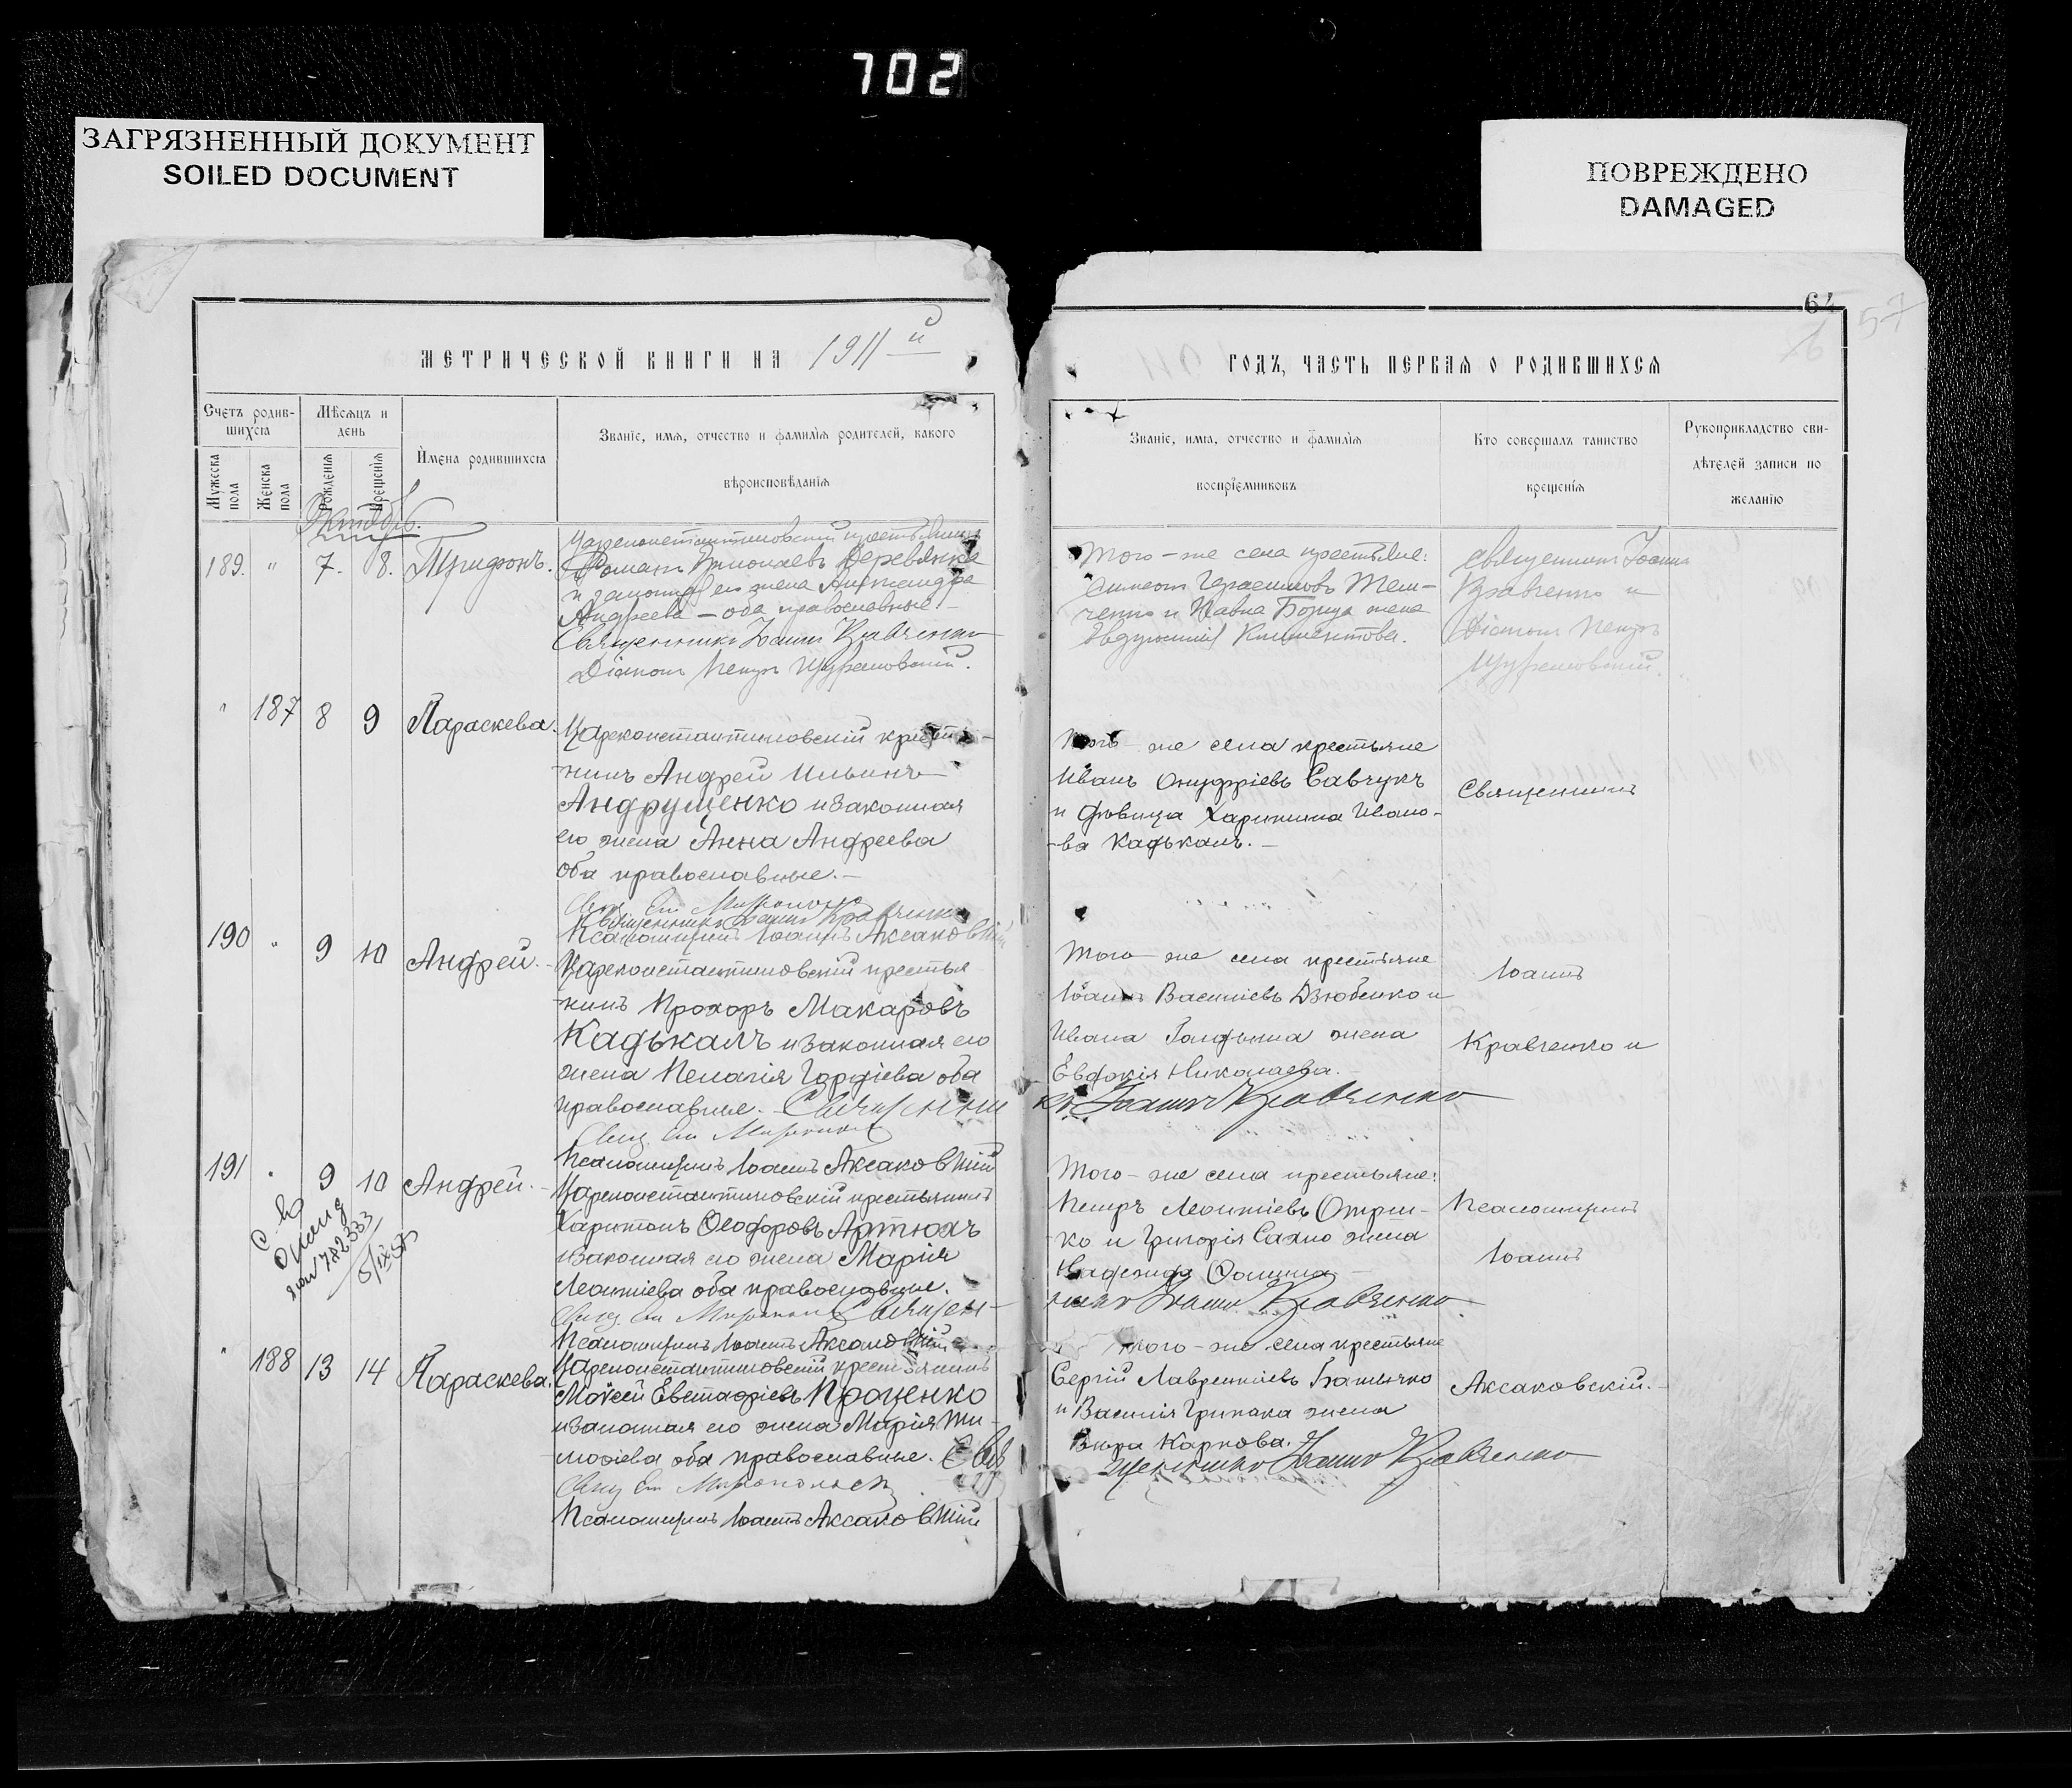 702
ЗАГРЯЗНЕННЫЙ ДОКУМЕНТ
SOILED DOCUMENT
ПОВРЕЖДЕНО
DAMAGED
64
57
МЕТРИЧЕСКОЙ КНИГИ НА 1911 й
ГОДЪ, ЧАСТЬ ПЕРВАЯ О РОДИВШИХСЯ
Счетъ родив-
шихся
Мужеска пола
Женска пола
Мѣсяцъ и
день
Рожденія
Крещенія
Имена родившихся
Званіе, имя, отчество и фамилія родителей, какого
вѣроисповѣданія
Званіе, имя, отчество и фамилія
воспріемниковъ
Кто совершалъ таинство
крещенія
Рукоприкладство сви-
дѣтелей записи по
желанію
Октябрь.
189. " 7. 8. Трифонъ.
Цареконстантиновскій крестьянинъ
Романъ Деревянко
и законная его жена Александра
Андреева – оба православные –
Священникъ Іоаннъ Кравченко
Діаконъ Петръ
Того-же села крестьяне:
Симеонъ Герасимовъ Тем-
ченко и Павла Борща жена
Евдокимія Климентова.
Священникъ Іоаннъ
Кравченко и
Діаконъ Петръ
" 187 8 9 Параскева.
Цареконстантиновскій крестья-
нинъ Андрей Ильинъ
Андрущенко и законная
его жена Анна Андреева
оба православные. –
Священникъ Іоаннъ Кравченко
Псаломщикъ Іоаннъ Аксаковскій
Того-же села крестьяне
Иванъ Онуфріевъ Савчукъ
и дѣвица Харитина Ивано-
-ва Кадькалъ. –
Священникъ
190 " 9 10 Андрей. –
Цареконстантиновскій крестья
нинъ Прохоръ Макаровъ
Кадькалъ и законная его
жена Пелагія Гордіева оба
православные. – Священни
къ Іоаннъ Кравченко
Псаломщикъ Іоаннъ Аксаковскій
Того-же села крестьяне
Іоаннъ Васильевъ Дзюбенко и
Ивана жена
Евдокія Николаева. –
Іоаннъ
Кравченко и
191 " 9 10 Андрей. –
Цареконстантиновскій крестьянинъ
Харитонъ Ѳеодоровъ Артюхъ
и законная его жена Марія
Леонтіева оба православные.
Священ-
никъ Іоаннъ Кравченко
Псаломщикъ Іоаннъ Аксаковскій
Того-же села крестьяне:
Петръ Леонтіевъ Отриш-
-ко и Григорія Сахно жена
Надежда Ѳомина –
Псаломщикъ
Іоаннъ
" 188 13 14 Параскева.
Цареконстантиновскій крестьянинъ
Моѵсей Евстафіевъ Проценко
и законная его жена Марія Ти-
моѳіева оба православные. Свя
щенникъ Іоаннъ Кравченко
Псаломщикъ Іоаннъ Аксаковскій
Того-же села крестьяне
Сергій Лаврентіевъ
и Василія Грипака жена
Вѣра Карпова.
Аксаковскій. –